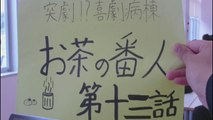 突劇!?喜劇病棟
お茶の番人
第十三話